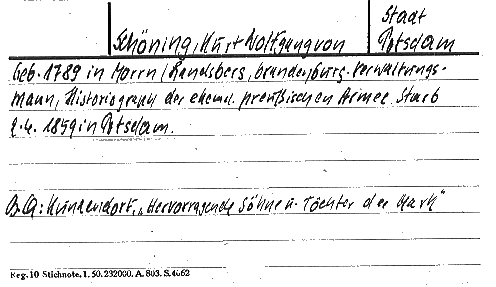 Stadt
Schöning, Kurt Wolfgang von
Potsdam
Geb. 1789 in Morrn (Landsberg, brandenburg. Verwaltungs-
mann, Historiograph der ehemal. preußischen Armee. Starb
2.4. 1859 in Potsdam.
"Hervorragende Söhne u. Töchter der Mark"
Reg. 10 Stichnote, 1. 50. 232000. A. 803. S. 4662